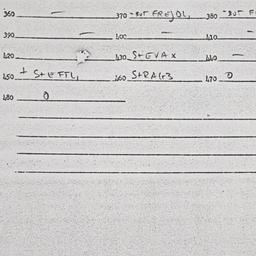 360 — 370 - BUT FREJOL, 380 - BUT F
390 — 400 — 410 -
420 430 S+EVAX 440 —
450 + S+E FTL, 460 S+RA 470 0
480 0